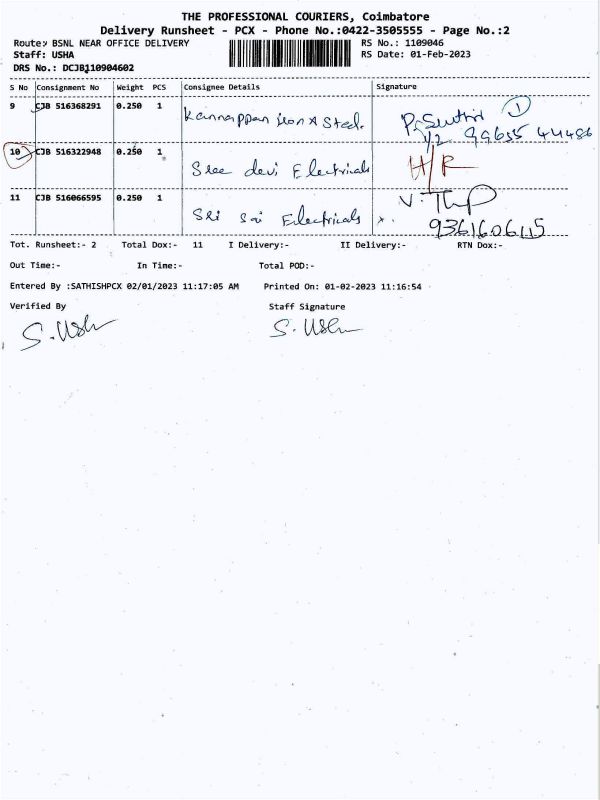 THE PROFESSIONAL COURIERS, Coimbatore
Delivery Runsheet - PCX - Phone No.:0422-3505555 - Page No.:2
Route: BSNL NEAR OFFICE DELIVERY RS No.: 1109046
Staff: USHA RS Date: 01-Feb-2023
DRS No.: DCJB110904602
S No Consignment No Weight PCS Consignee Details Signature
9 CJB 516368291 0.250 1 Kannappan iron & Steel. P. Senthil 1
1/2 99655 44486
10 CJB 516322948 0.250 1 Sree devi Electricals H/R
11 CJB 516066595 0.250 1 Sri Sai Electricals
9361606115
Tot. Runsheet:- 2 Total Dox:- 11 I Delivery:- II Delivery:- RTN Dox:-
Out Time:- In Time:- Total POD:-
Entered By :SATHISHPCX 02/01/2023 11:17:05 AM Printed On: 01-02-2023 11:16:54
Verified By Staff Signature
S. Usha S. Usha